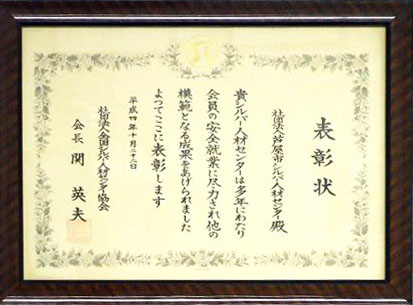 表彰状
社団法人芦屋市シルバー人材センター殿
貴シルバー人材センターは多年にわたり
会員の安全就業に尽力され他の
模範となる成果をあげられました
よってここに表彰します
平成四年十月二十二日
社団法人全国シルバー人材センター協会
会長 関 英夫